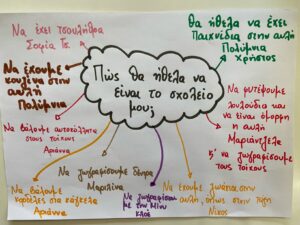 Να έχει τσουλήθρα
Σοφία Τζ.
Θα ήθελα να έχει
παιχνίδια στην αυλή
Πολύμνια
Χρήστος
Να έχουμε
κουζίνα στην
αυλή
Πολύμνια
Πώς θα ήθελα να
είναι το σχολείο
μους
Να φυτέψουμε
λουλούδια και
να είναι όμορφη
η αυλή
Μαριάντζελα
κ' να ζωγραφίσουμε
τους τοίχους
Να βάλουμε αυτοκόλλητα
στους τοίχους
Αριάννα
Να ζωγραφίσουμε δέντρα
Μαριλίνα
Να βάλουμε
κορδέλες στα κάγκελα
Αριάννα
Να ζωγραφίσω
με την
Χλόη
Να έχουμε ζωάκια στην
αυλή, όπως στην
Νίκος